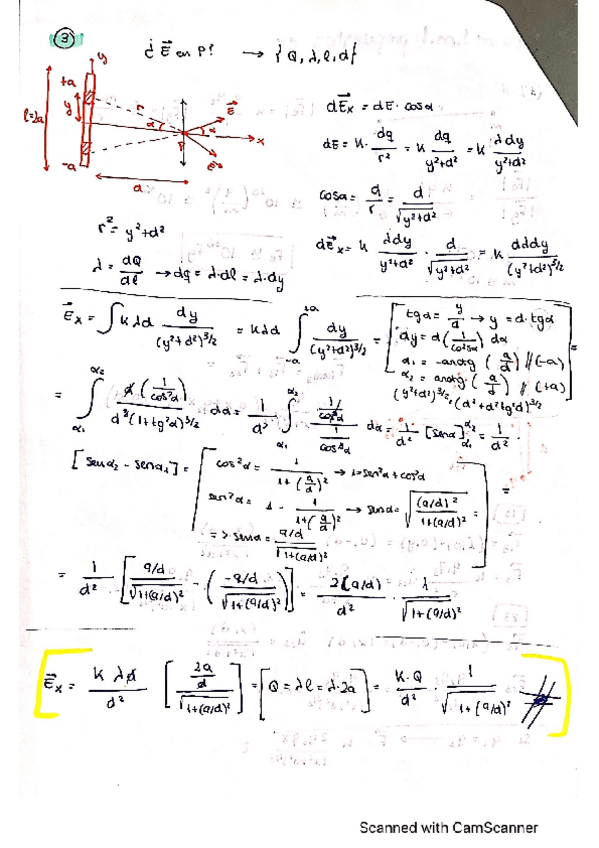 ③ ¿ E⃗ en P? → { Q, λ, l, d }
y
+a
l=2a
y
r
α
α
E⃗
x
P
E⃗
-a
d
dE⃗x = dE · cosα
dE = k · dq/r² = k dq/(y²+d²) = k λdy/(y²+d²)
cosα = d/r = d/√(y²+d²)
r² = y²+d²
dE⃗x = k λdy/(y²+d²) · d/√(y²+d²) = k dλdy/(y²+d²)^3/2
λ = dQ/dl → dq = λ·dl = λ·dy
E⃗x = ∫ kλd dy/(y²+d²)^3/2 = kλd ∫ -a +a dy/(y²+d²)^3/2 = [ tgα = y/d → y = d·tgα
dy = d(1/cos²α) dα
α₁ = -arctg (a/d) // (-a)
α₂ = arctg (a/d) // (+a)
(y²+d²)^3/2 = (d²+d²tg²α)^3/2 ] =
= ∫ α₁ α₂ d(1/cos²α)/d³(1+tg²α)^3/2 dα = 1/d² ∫ α₁ α₂ 1/cos²α / 1/cos³α dα = 1/d² [senα] α₁ α₂ = 1/d² ·
[senα₂ - senα₁] = [ cos²α = 1/(1+(a/d)²) → 1=sen²α+cos²α
sen²α = 1 - 1/(1+(a/d)²) → senα = √((a/d)²/(1+(a/d)²)) =
=> senα = a/d/√(1+(a/d)²) ] =
= 1/d² [ a/d/√(1+(a/d)²) - (-a/d/√(1+(a/d)²)) ] = 2(a/d)/d² · 1/√(1+(a/d)²)
E⃗x = k λd/d² [ 2a/d/√(1+(a/d)²) ] = [ Q = λl = λ·2a ] = K·Q/d² · 1/√(1+(a/d)²)
Scanned with CamScanner